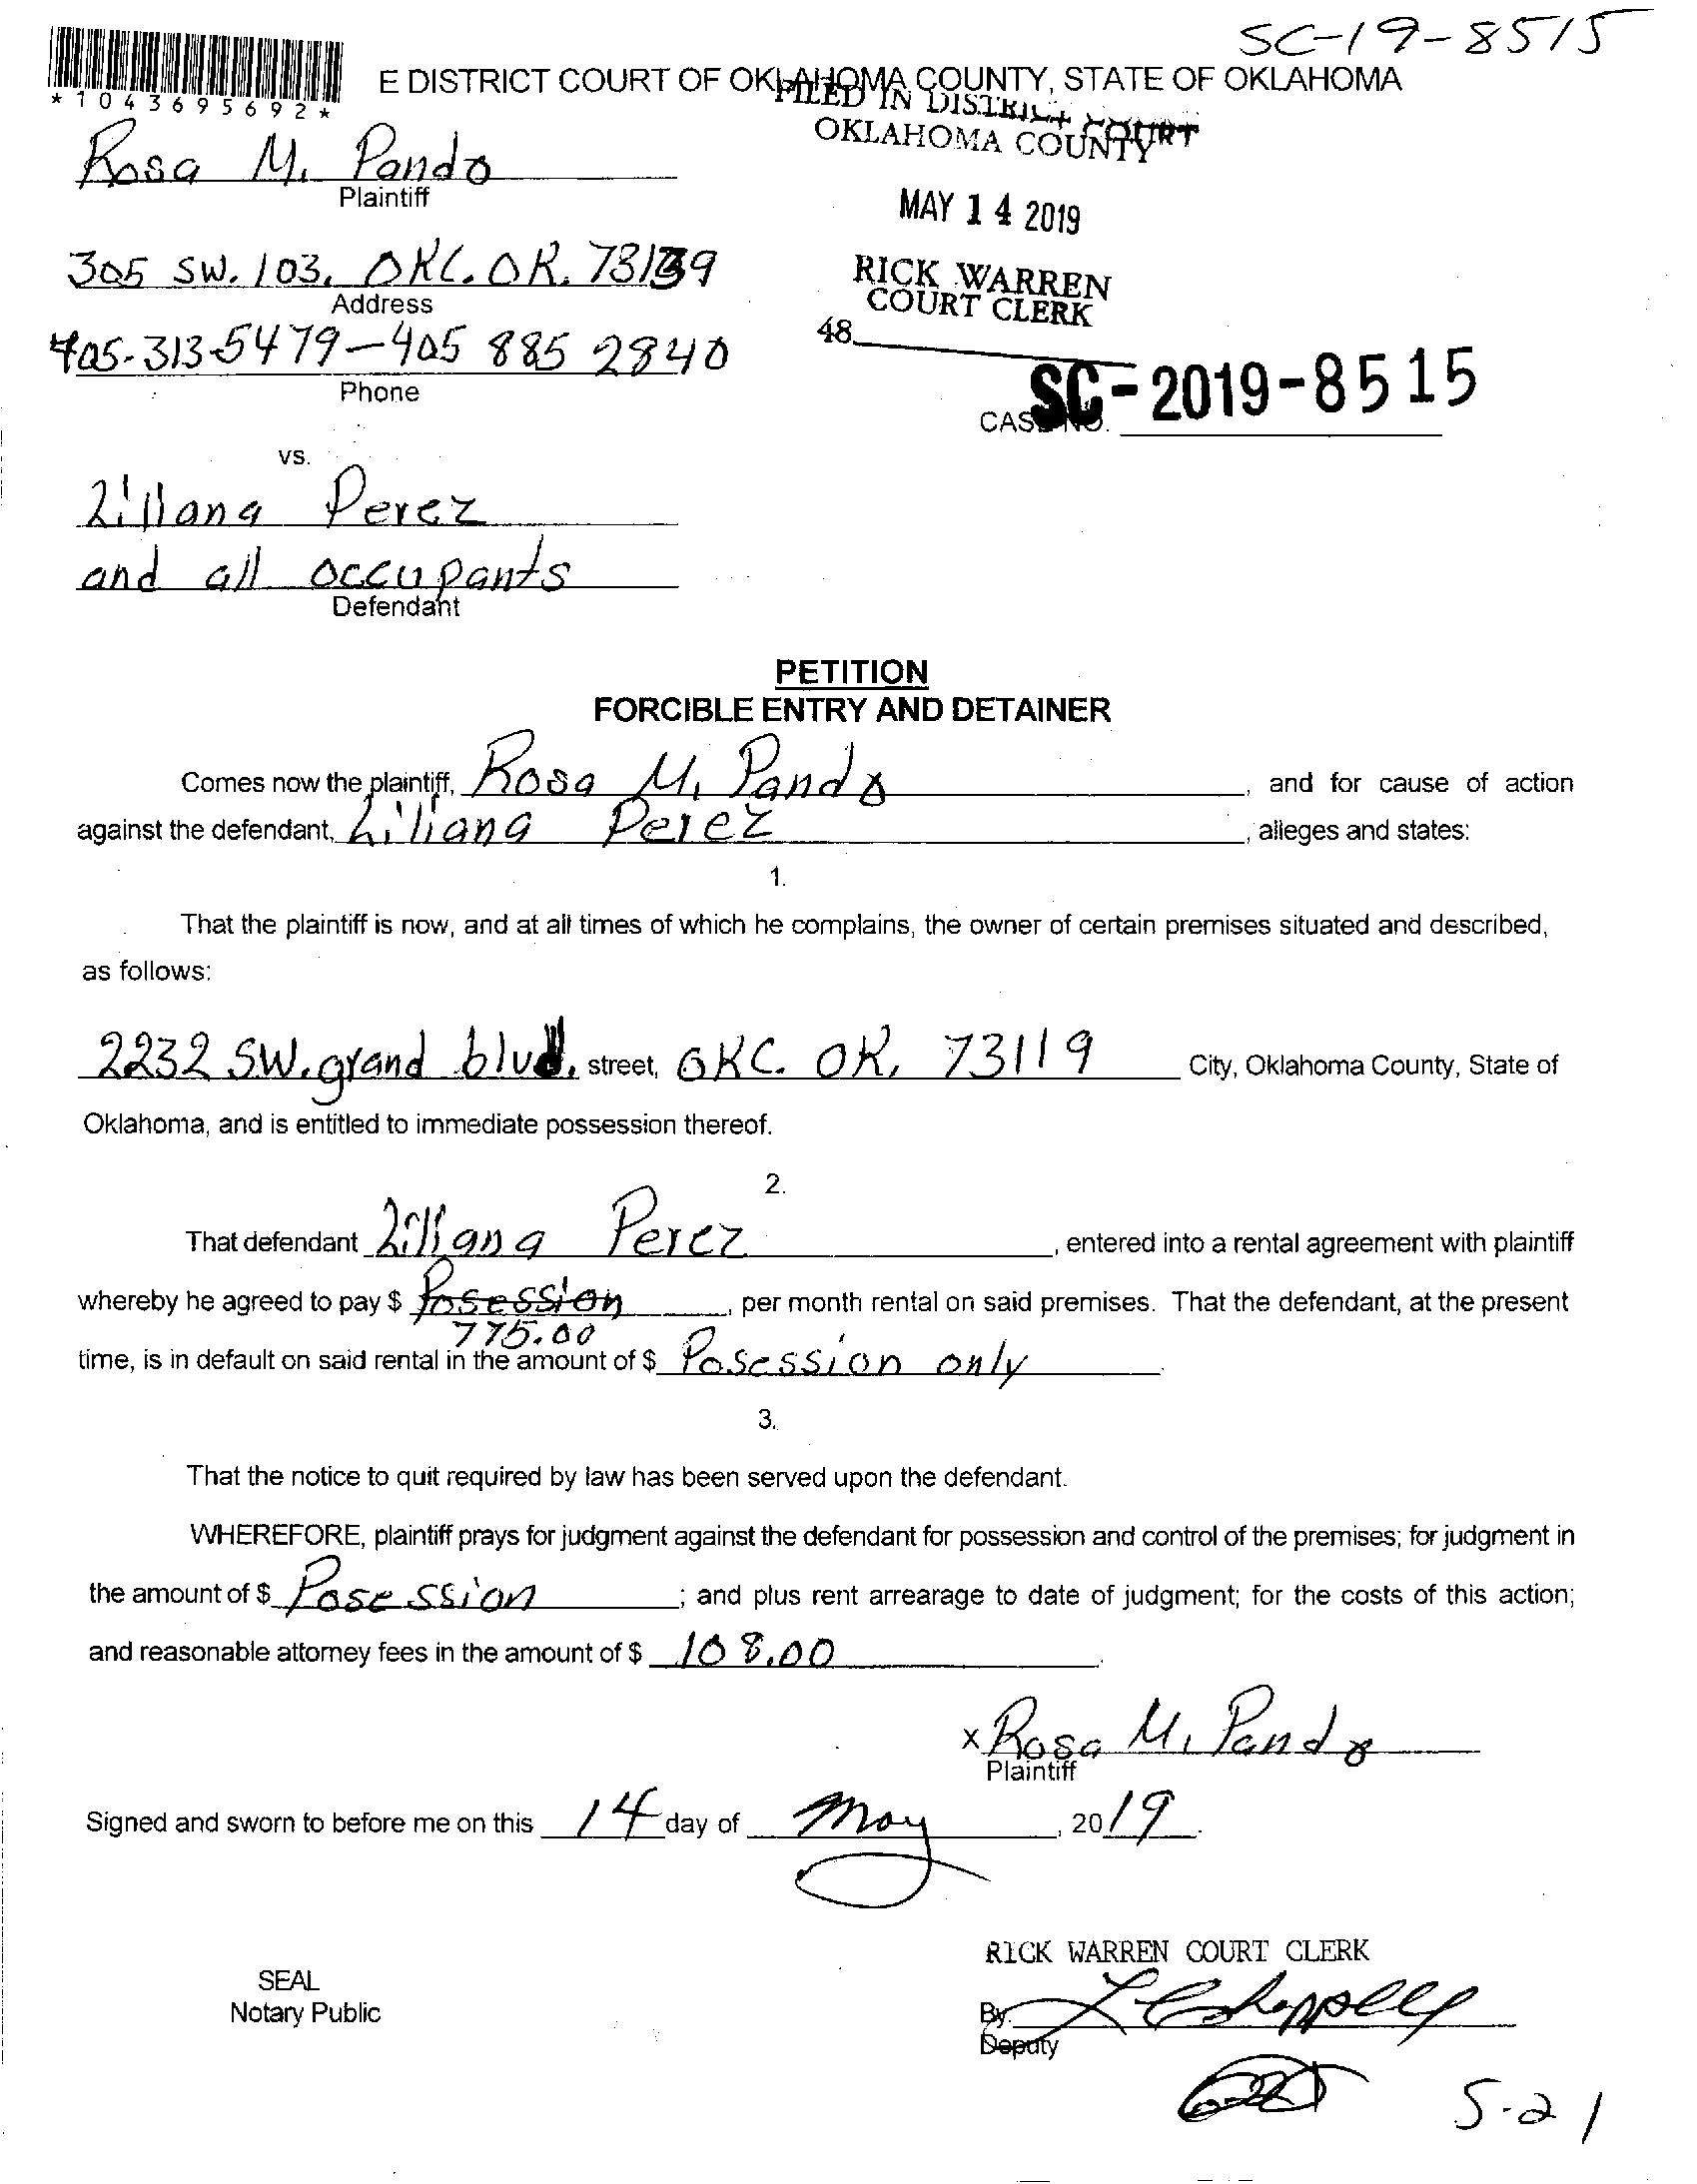 SC-19-8515
*1043695692*
E DISTRICT COURT OF OKLAHOMA COUNTY, STATE OF OKLAHOMA
FILED IN DISTRICT COURT
OKLAHOMA COUNTY
Rosa M. Pando
Plaintiff
MAY 14 2019
305 SW. 103, OKC. OK. 73139
Address
RICK WARREN
COURT CLERK
405-313-5479-405 885 2840
48
Phone
SC-2019-8515
CASE NO.
vs.
Liliana Perez
and all occupants
Defendant
PETITION
FORCIBLE ENTRY AND DETAINER
Comes now the plaintiff, Rosa M. Pando, and for cause of action
against the defendant, Liliana Perez, alleges and states:
1.
That the plaintiff is now, and at all times of which he complains, the owner of certain premises situated and described,
as follows:
2232 SW. grand blvd. street, OKC. OK, 73119 City, Oklahoma County, State of
Oklahoma, and is entitled to immediate possession thereof.
2.
That defendant Liliana Perez, entered into a rental agreement with plaintiff
whereby he agreed to pay $ Posession, per month rental on said premises. That the defendant, at the present
775.00
time, is in default on said rental in the amount of $ Posession only.
3.
That the notice to quit required by law has been served upon the defendant.
WHEREFORE, plaintiff prays for judgment against the defendant for possession and control of the premises; for judgment in
the amount of $ Posession; and plus rent arrearage to date of judgment; for the costs of this action;
and reasonable attorney fees in the amount of $ 108.00.
x Rosa M. Pando
Plaintiff
Signed and sworn to before me on this 14 day of May, 2019.
RICK WARREN COURT CLERK
SEAL
Notary Public
By:
Deputy
5-21